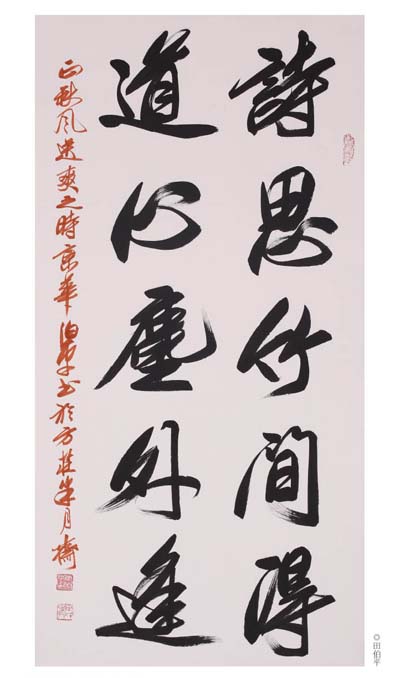 詩思竹間得
道心塵外逢
正秋风送爽之時京華伯平书於方莊
◎田伯平